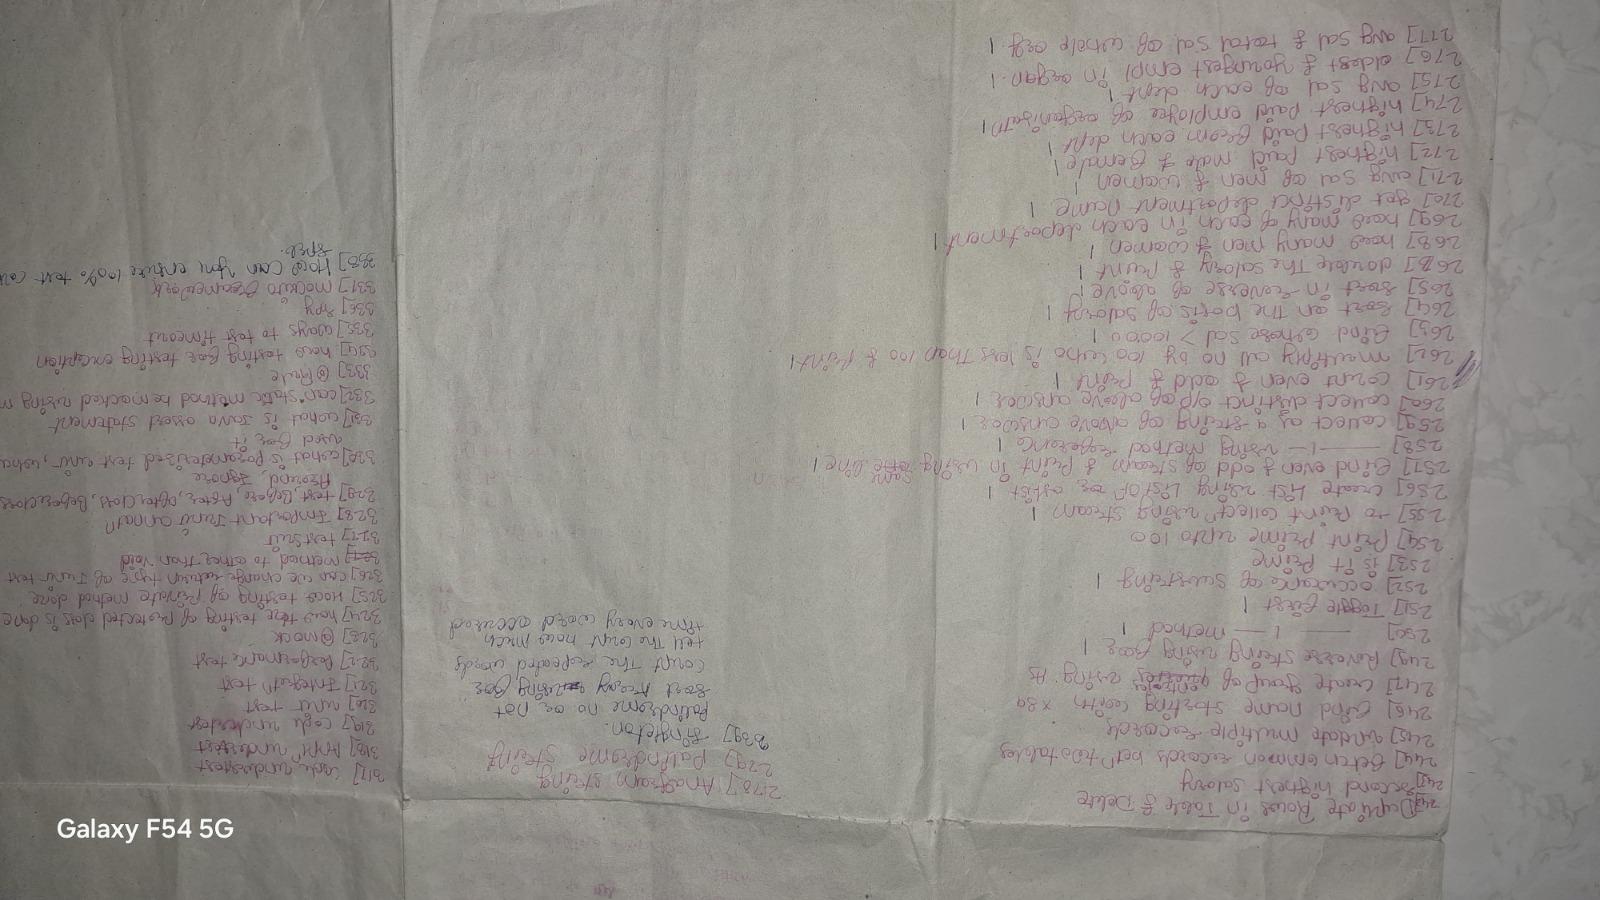 242] Dupliate Rows in Table & Delete
243] second highest salary
244] fetch common records betn two tables
245] update multiple records
246] find name starting with
247] create group of entries using As
249] Reverse string using for
250] —— 1 — method
251] Toggle first
252] occurance of substring
253] is it Prime
254] Print Prime upto 100
255] to Print collectn using stream
256] create List using List Of or asList
257] find even & odd of stream & Print in using same line
258] —— 1 — using method reference
259] collect as a string of above answer
260] collect distinct o/p of above answer
261] count even & odd & Print
262] multiply all no by 100 who is less Than 100 & Print
263] find whose sal > 10000
264] sort on the basis of salary
265] sort in reverse of above
267] double The salary & Print
268] how many men & women
269] how many of each in each department
270] get distinct department name
271] avg sal of men & women
272] highest paid male & female
273] highest Paid from each dept
274] highest Paid employee of organisatn
275] avg sal of each dept
276] oldest & youngest empl in organ.
277] avg sal & total sal of whole org
278] Anagram string
279] Palindrome string
339] singleton.
Palindrome no or not
sort Array using for
Count The repeated words
tell The count how much
time every word occured
317] code undertest
318] undertest
319] code undertest
320] unit test
321] Integretn test
322] Performance test
323] @mock
324] how the testing of Protected class is done
325] How testing of Private method done
326] can we change return type of Junit test
method to other Than void
327] test suit
328] Important Junit annatn
329] test, Before, After, afterClass, BeforeClass
Around, Ignore
330] what is parameterised test unit,
used for it
331] what is Java assert statement
332] can static method be mocked using
333] @Rule
334] how testing for testing exception
335] ways to test timeout
336] spy
337] mockito framework
338] How Can You ensure 100% test
Galaxy F54 5G